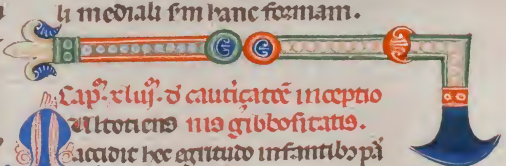 li mediali ſm hanc formam.
Cap°. xluıȷ. đ cautiçatõe inceptio
Multotiens nis gibboſitatis.
accidit hec egritudo infantibꝫ pa̾